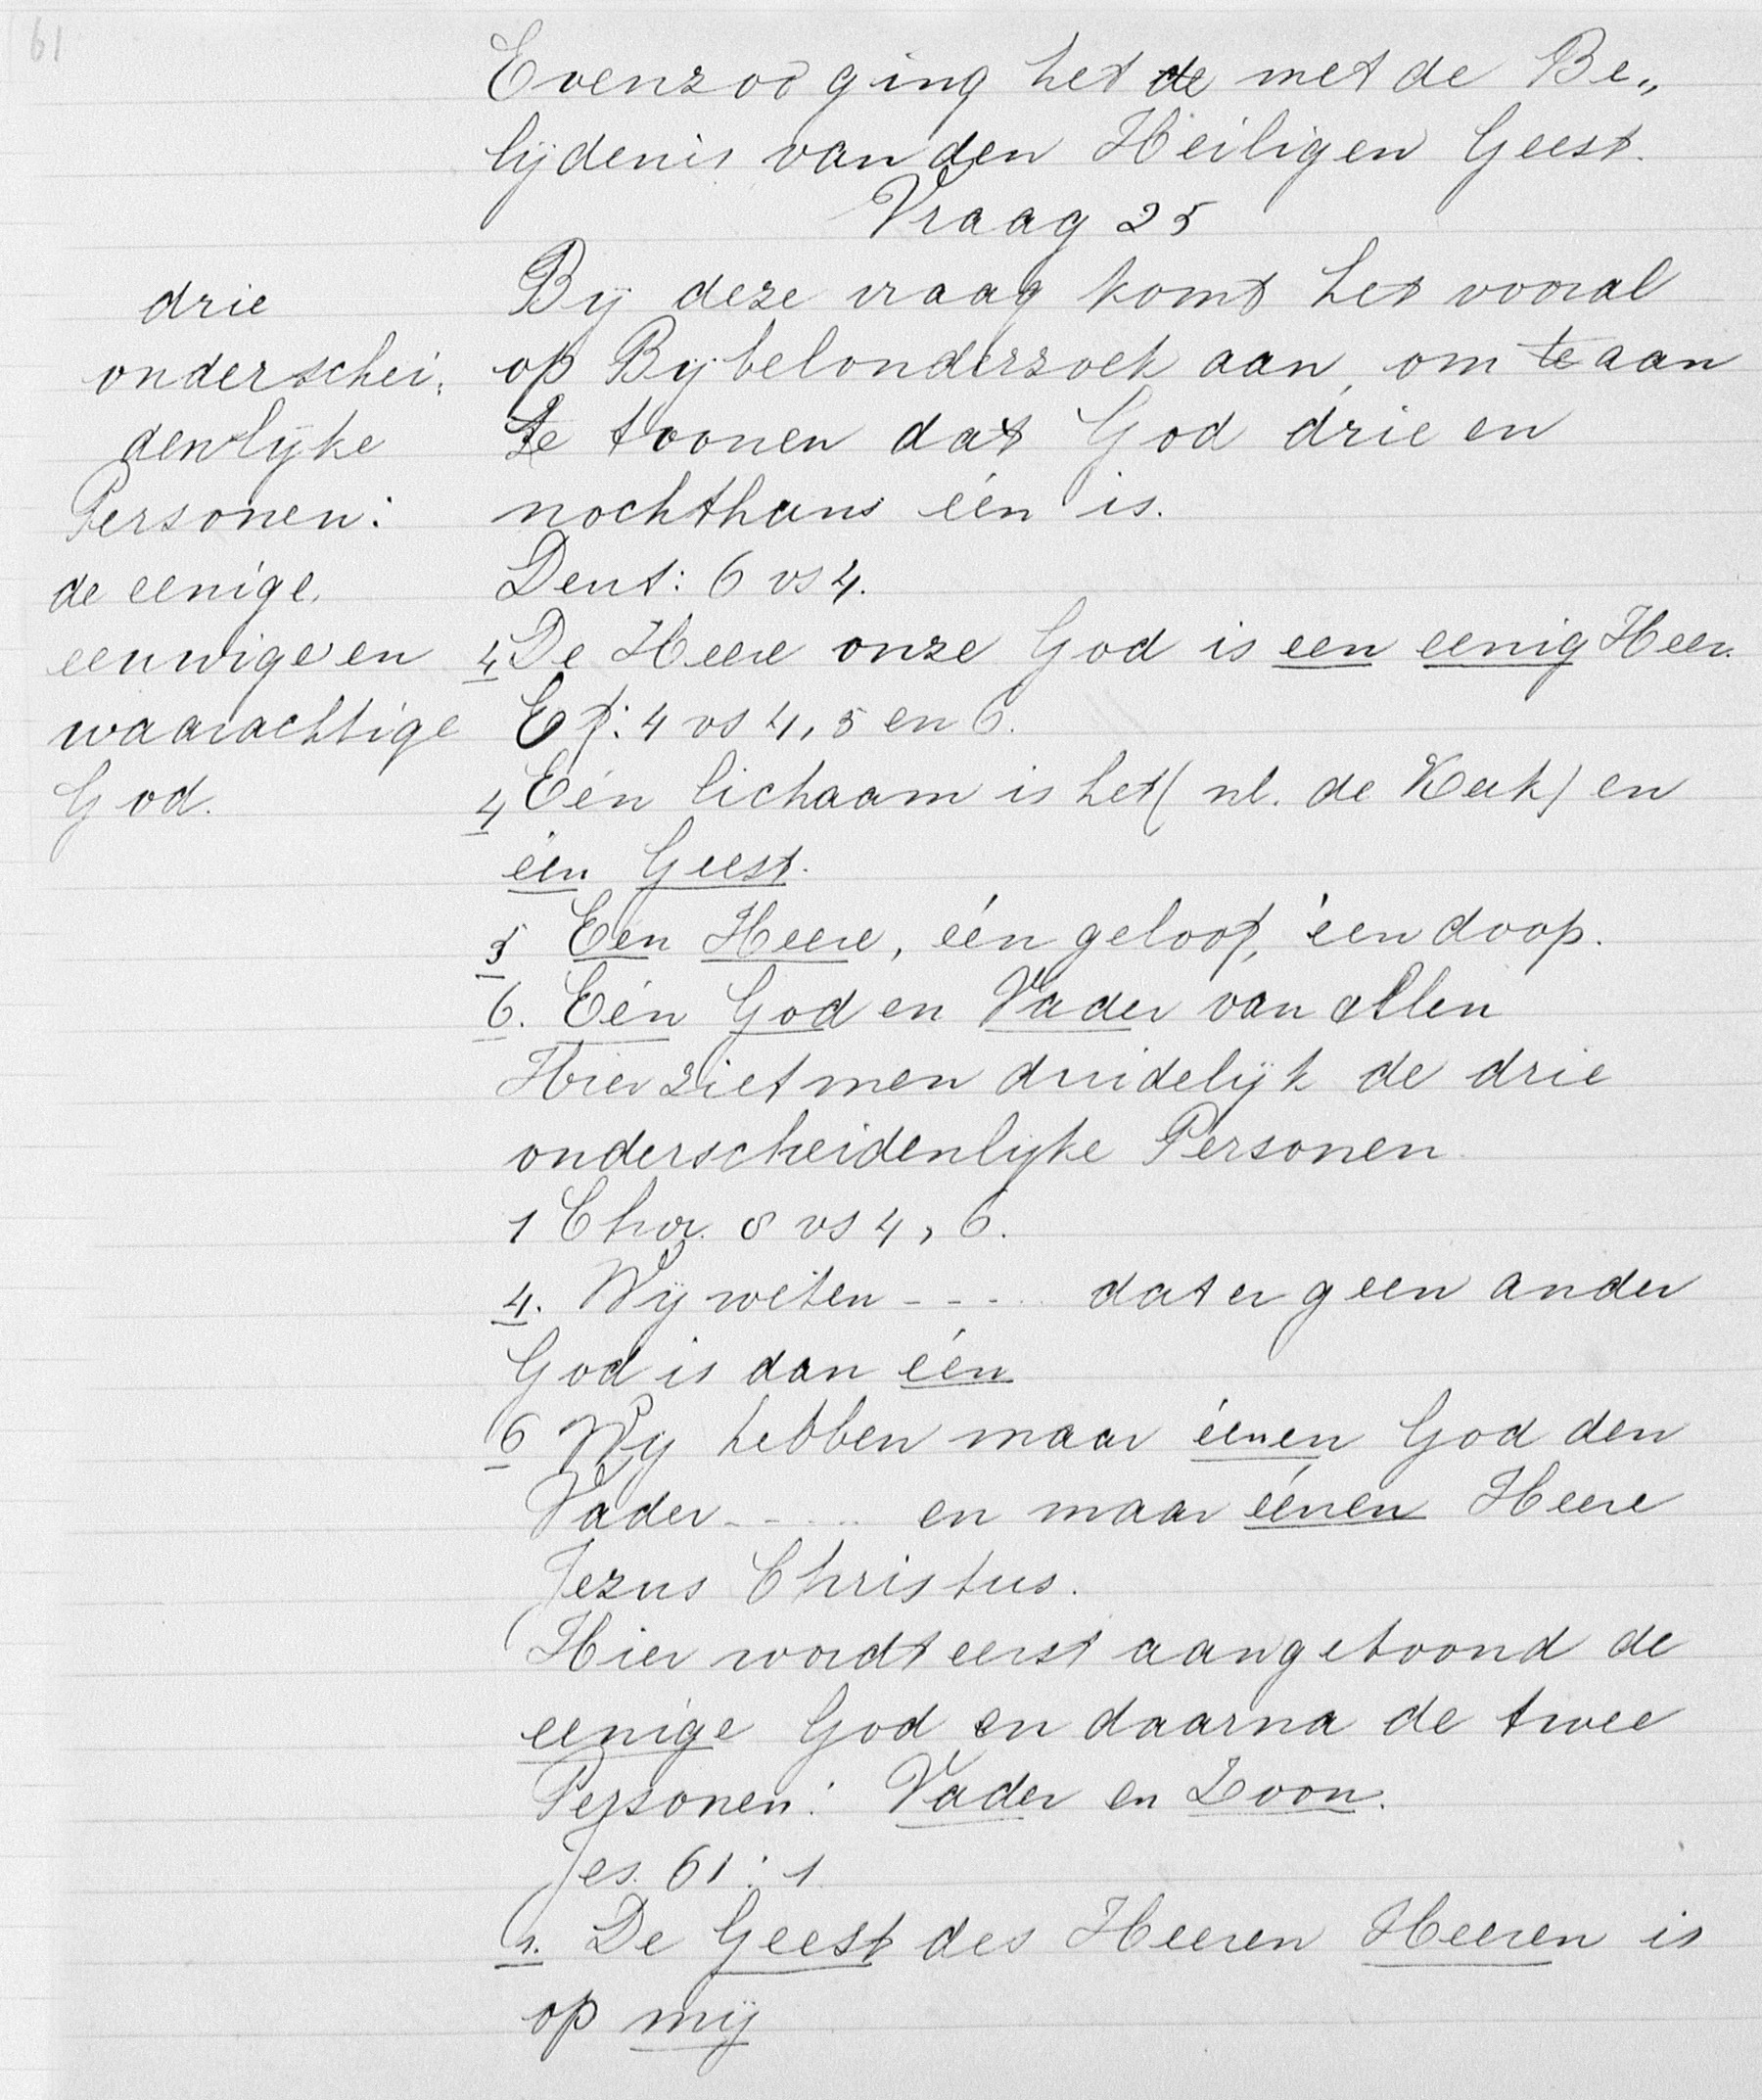 61
Evenzoo ging het de met de Be„
lijdenis van den Heiligen Geest.
Vraag 25
drie
onderschei:
denlijke
Personen:
de eenige,
eeuwige en
waarachtige
God.
Bij deze vraag komt het vooral
op Bijbelonderzoek aan, om te aan
te toonen dat God drie en
nochthans één is.
Deut: 6 vs 4.
4 De Heere onze God is een eenig Heer.
Ef: 4 vs 4, 5 en 6.
4 Eén lichaam is het (nl. de Kerk) en
één Geest.
5 Eén Heere, één geloof, één doop.
6. Eén God en Vader van allen
Hier ziet men duidelijk de drie
onderscheidenlijke Personen.
1 Chor. 8 vs 4, 6.
4. Wij weten - - - - - dat er geen ander
God is dan één
6 Wij hebben maar éénen God den
Vader - - - - - en maar éénen Heere
Jezus Christus.
Hier wordt eerst aangetoond de
eenige God en daarna de twee
Personen: Vader en Zoon.
Jes. 61:1
1. De Geest des Heeren Heeren is
op mij